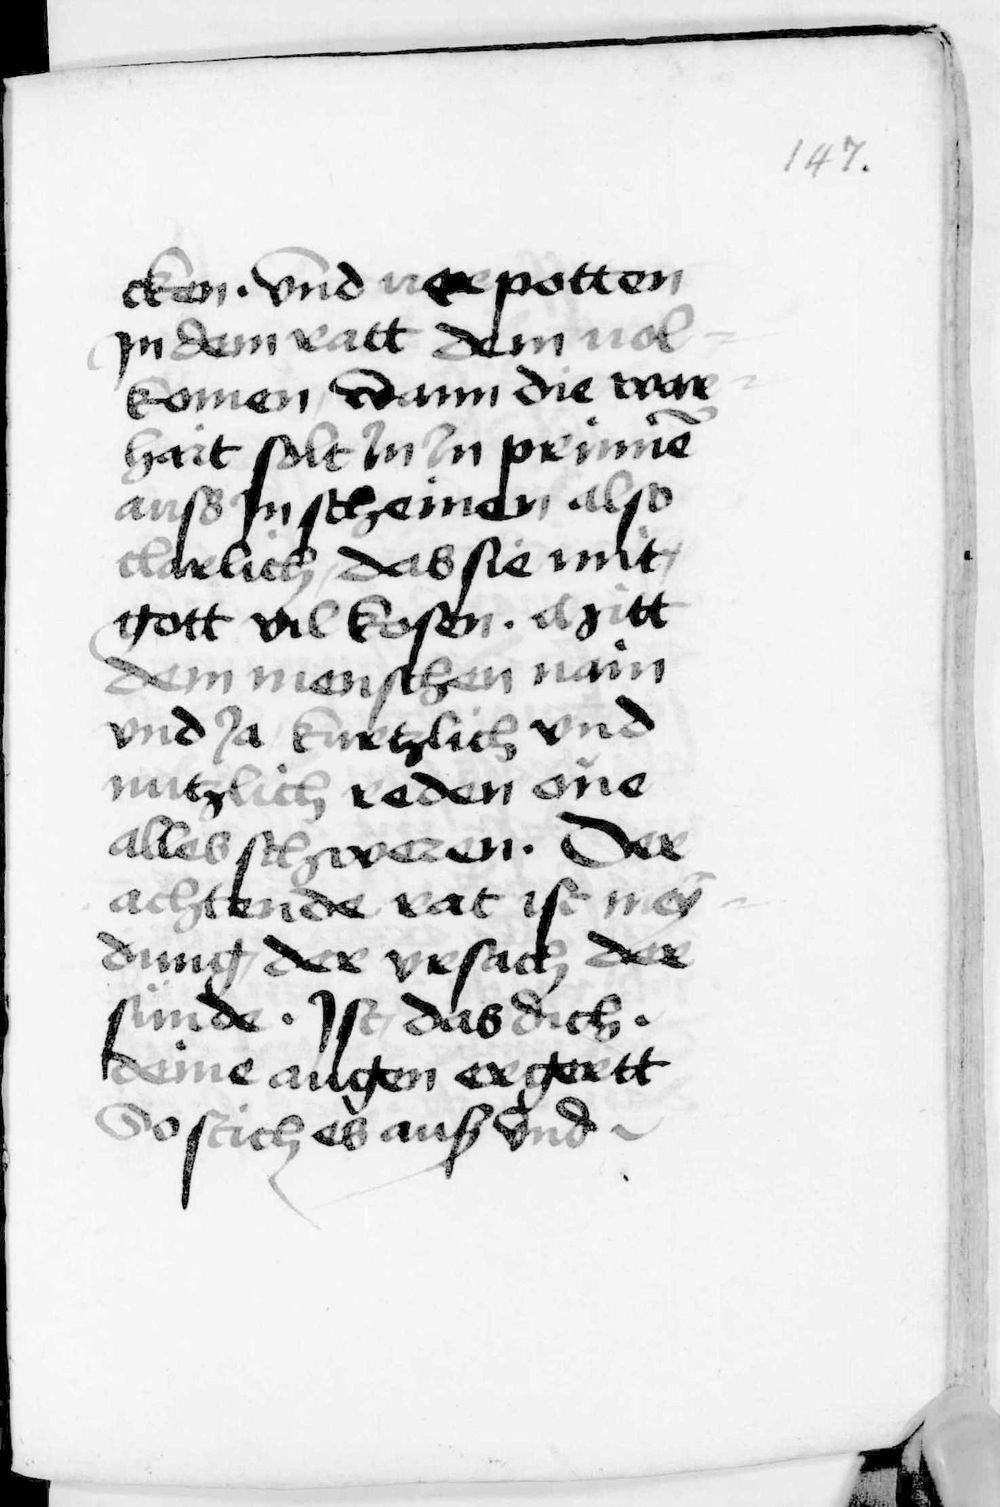 147.
cken . vnd uerpotten
In dem ratt dem uol =
komen / Wann die war =
hait solt In In prinnē
auss In scheinen also
clarlich / das sie mit /
gott vil kosen . Mitt
dem menschen nain
vnd Ja / kurtzlich vnd
nutzlich reden one
alles schweren . Der
achtende rat ist meÿ =
dung / der vrsach der
sünde . Ist / das dich .
deine augen ergertt
So stich es auß vnd ~